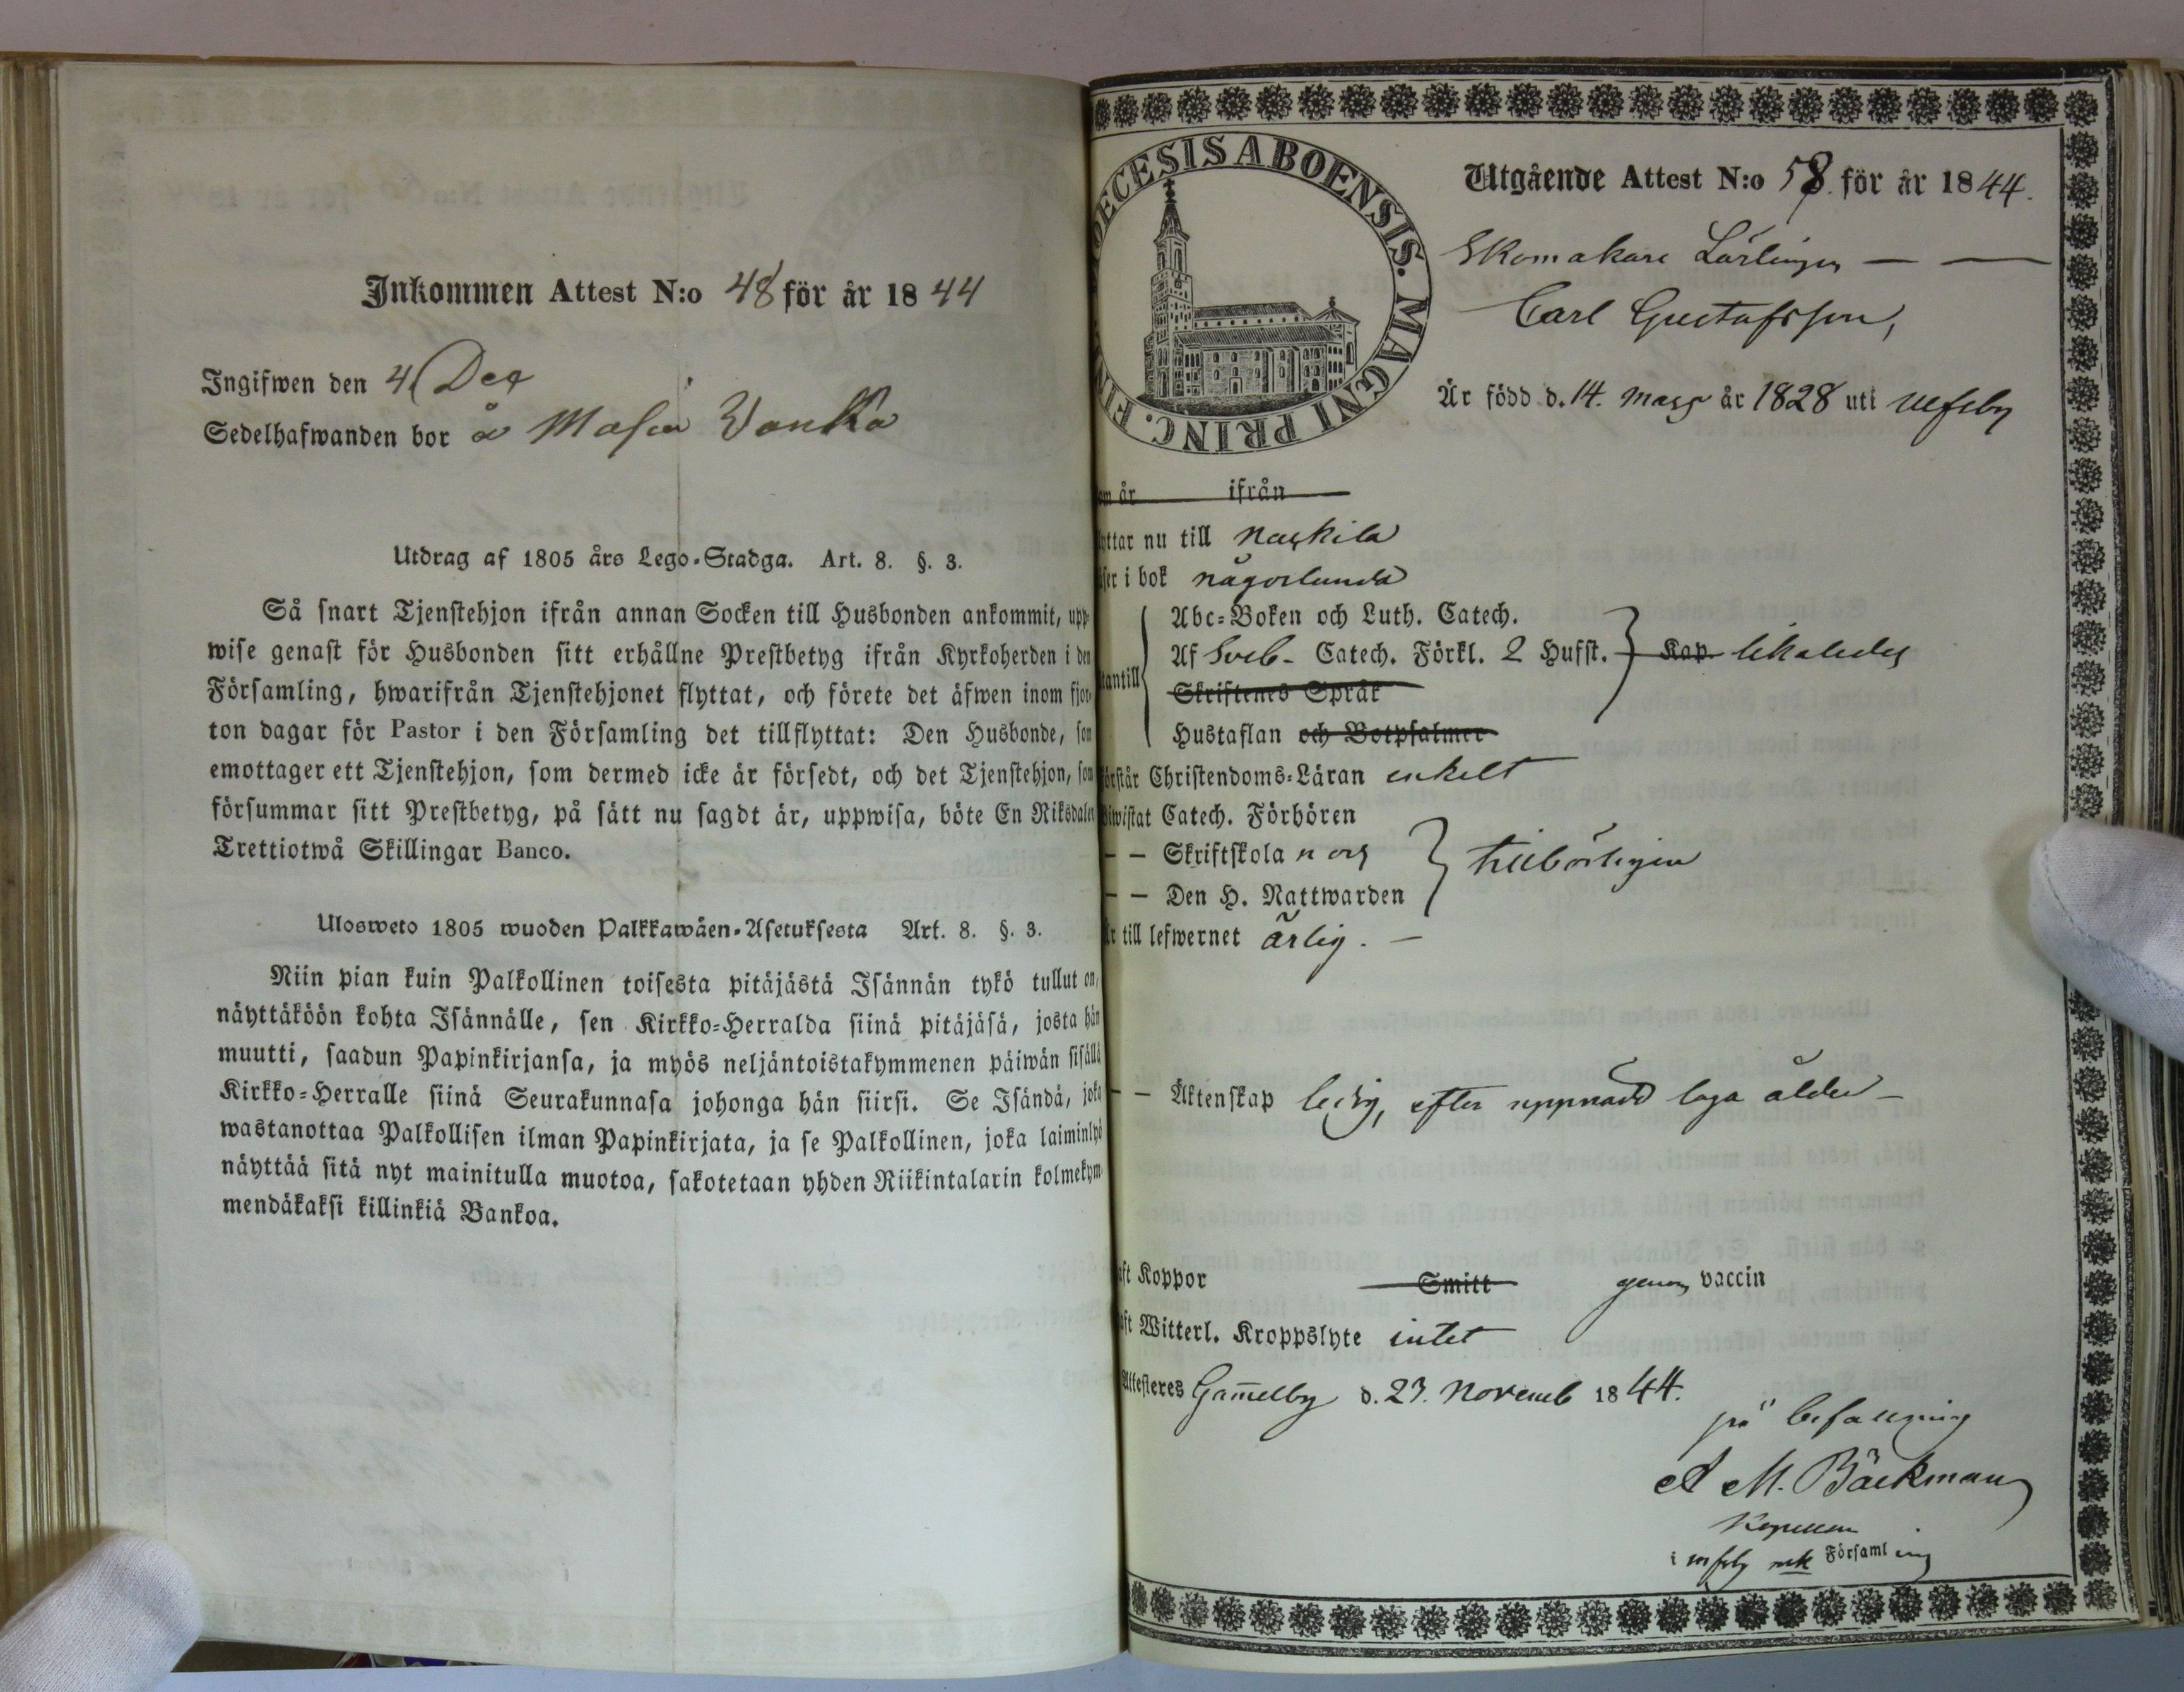 Inkommen Attest N:o 48 för år 1844
Ingifwen den 4 Dec
Sedelhafwanden bor å Masia Vanka
Utdrag af 1805 års Lego-Stadga. Art. 8. §. 3.
Så snart Tjenstehjon ifrån annan Socken till Husbonden ankommit, upp-
wise genast för Husbonden sitt erhållne Prestbetyg ifrån Kyrkoherden i den
Församling, hwarifrån Tjenstehjonet flyttat, och förete det äfwen inom fjor-
ton dagar för Pastor i den Församling det tillflyttat: Den Husbonde, som
emottager ett Tjenstehjon, som dermed icke är försedt, och det Tjenstehjon, som
försummar sitt Prestbetyg, på sätt nu sagdt är, uppwisa, böte En Riksdaler
Trettiotwå Skillingar Banco.
Ulosweto 1805 wuoden Palkkawäen-Asetuksesta Art. 8. §. 3.
Niin pian kuin Palkollinen toisesta pitäjästä Isännän tykö tullut on,
näyttäköön kohta Isännälle, sen Kirkko-Herralda siinä pitäjäsä, josta hän
muutti, saadun Papinkirjansa, ja myös neljäntoistakymmenen päiwän sisällä
Kirkko-Herralle siinä Seurakunnasa johonga hän siirsi. Se Isändä, joka
wastanottaa Palkollisen ilman Papinkirjata, ja se Palkollinen, joka laiminlyö
näyttää sitä nyt mainitulla muotoa, sakotetaan yhden Riikintalarin kolmekym-
mendäkaksi killinkiä Bankoa.
DECESIS ABOENSIS. MAGNI PRINC. FIN
Utgående Attest N:o 58. för år 1844.
Skomakare Lärlingen
Carl Gustafsson,
Är född d. 14. mars år 1828 uti Ulfsby
om år ifrån
yttar nu till Naskila
äser i bok någorlunda
Abc-Boken och Luth. Catech.
Af Sveb- Catech. Förkl. 2 Hufst. Kap. likaledes
tantill
Skriftenes Språk
Hustaflan och Botpsalmer
örstår Christendoms-Läran enkelt
Biwistat Catech. Förhören
– – Skriftskola n
– – Den H. Nattwarden tillbörligen
Är till lefwernet ärlig. –
– – Äktenskap ledig, efter uppnådd laga ålder –
aft Koppor Smitt genom vaccin
aft Witterl. Kroppslyte intet
Attesteres Gamelby d. 23. Novemb 1844.
på befallning
A M. Bäckman
i Församling